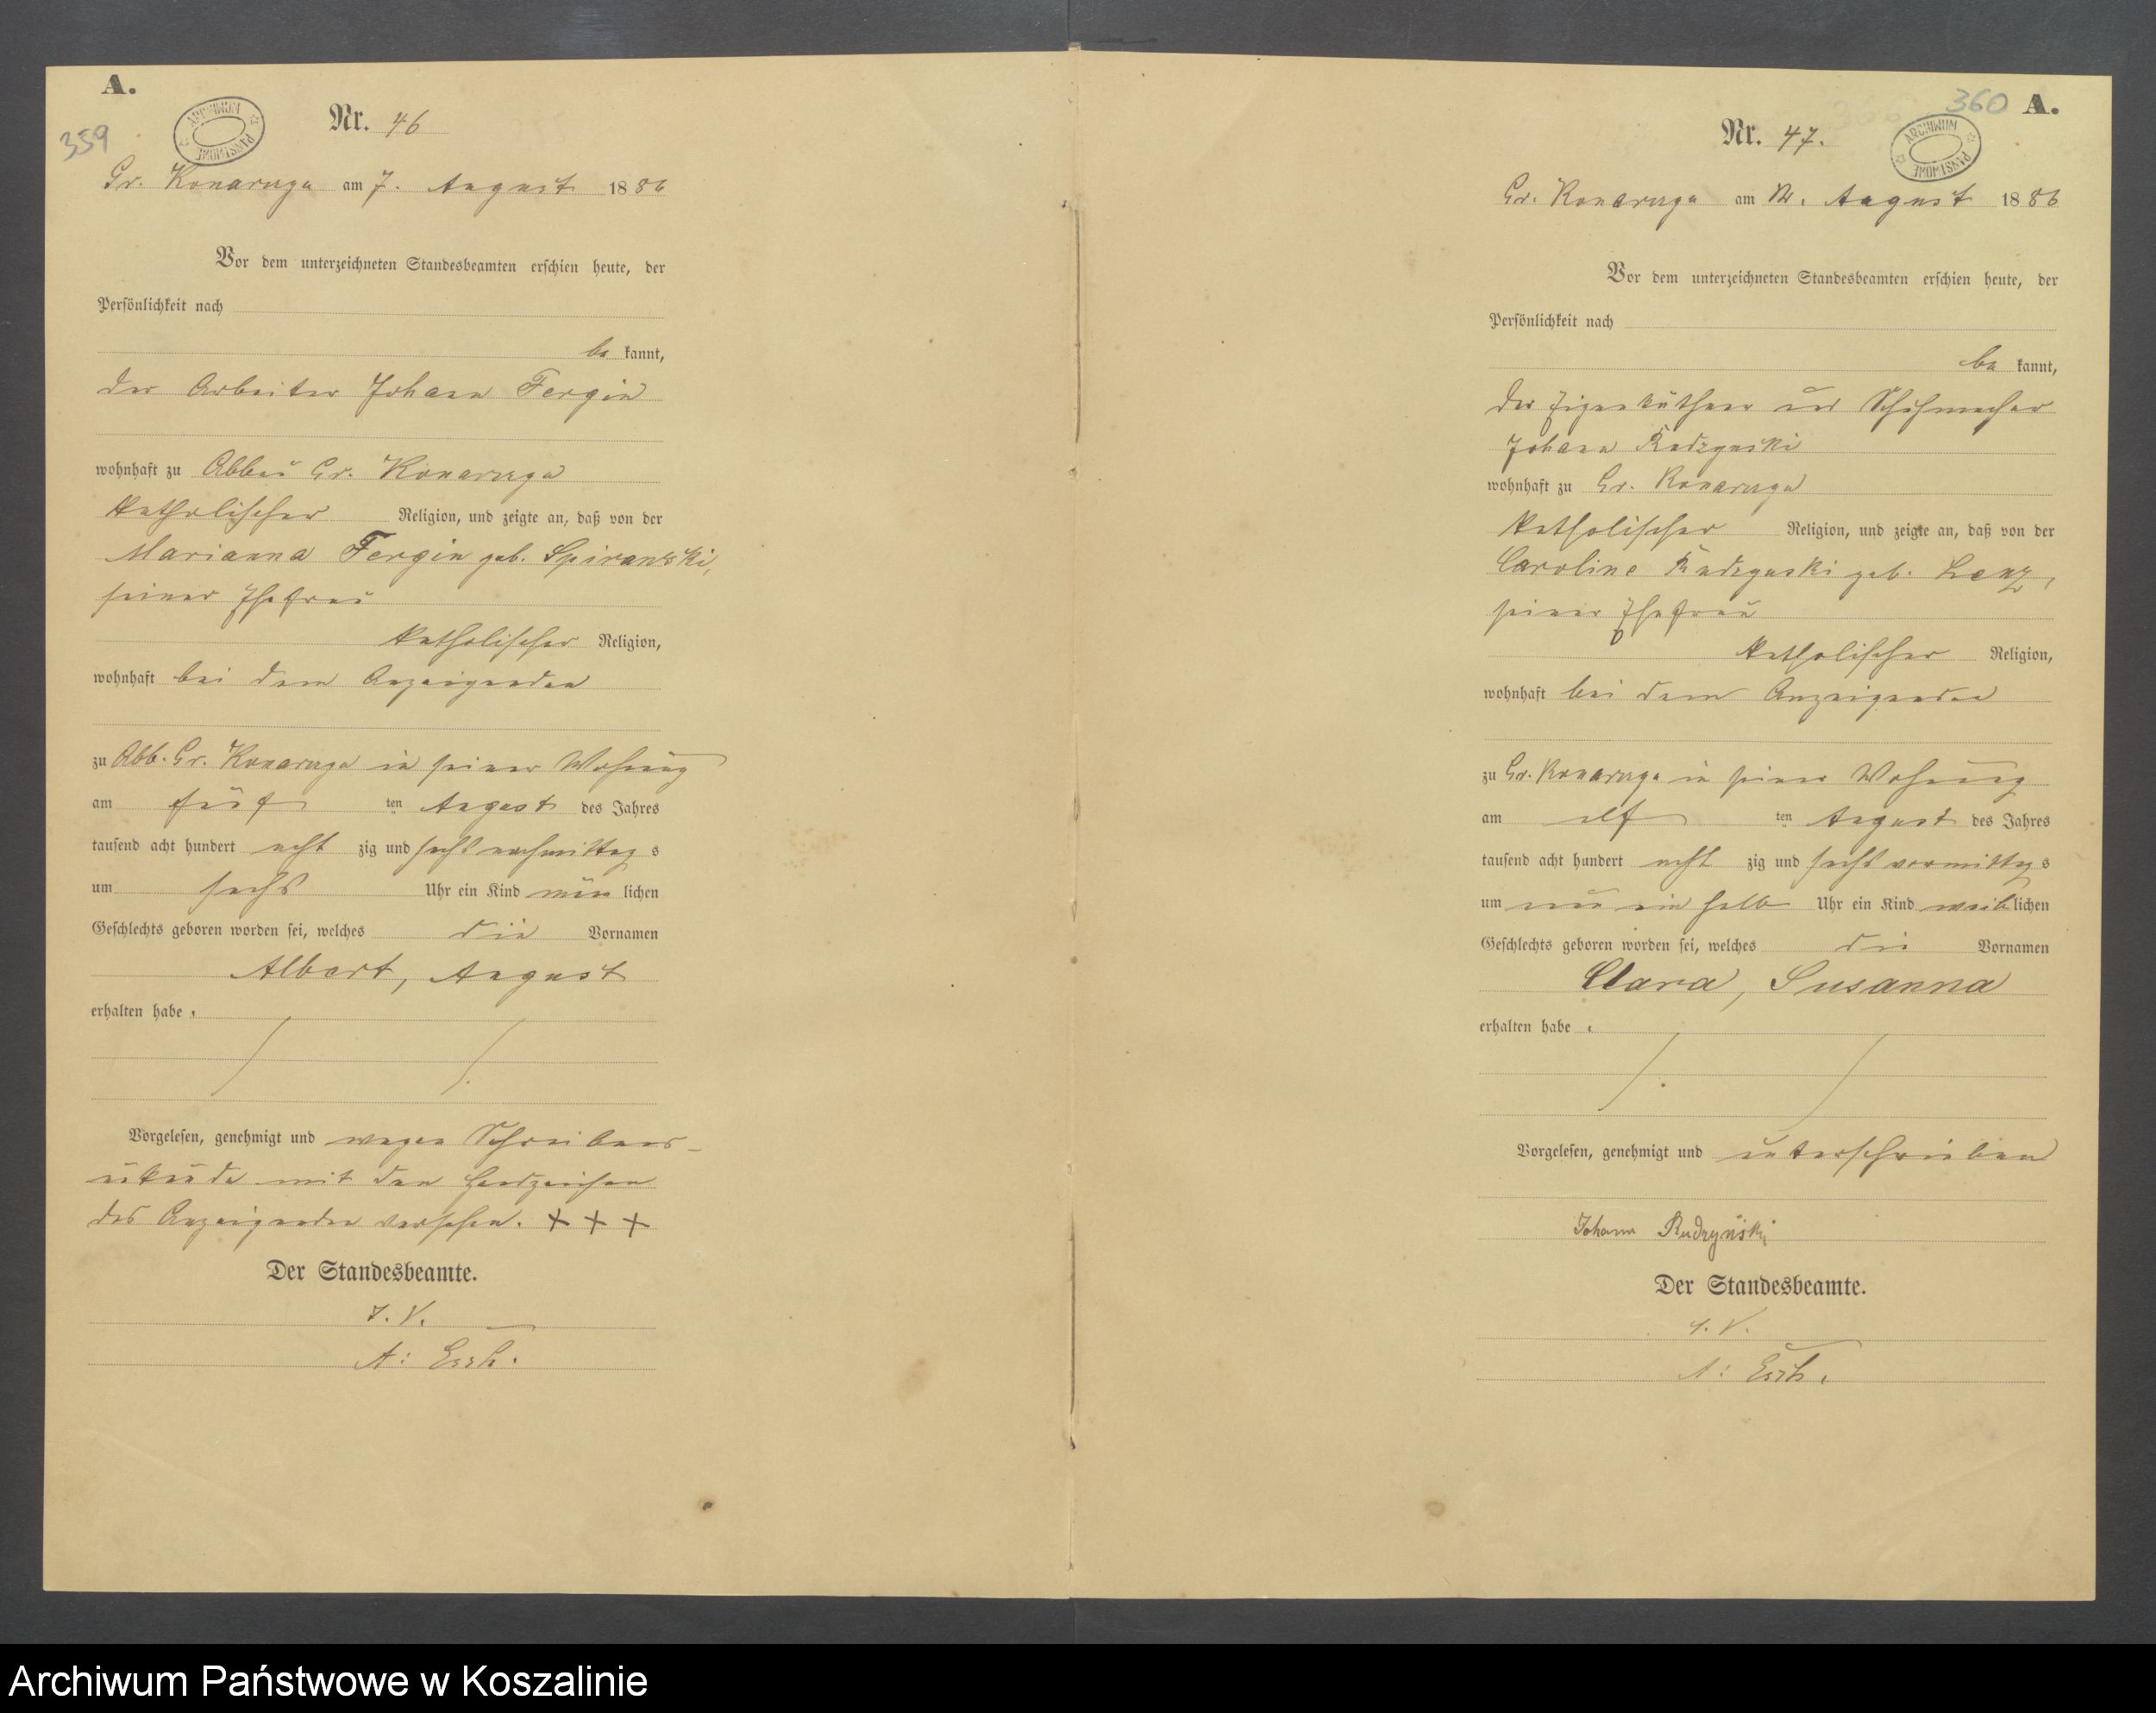 A.
359
ARCHIWUM PAŃSTWOWE
Nr. 46
Gr. Konarzyn am 7. August 1886
Vor dem unterzeichneten Standesbeamten erschien heute, der
Persönlichkeit nach
be kannt,
der Arbeiter Johann Fergin
wohnhaft zu Abbau Gr. Konarzyn
katholischer Religion, und zeigte an, daß von der
Marianna Fergin geb.
seiner Ehefrau
katholischer Religion,
wohnhaft bei dem Anzeigenden
zu Abb. Gr. Konarzyn in seiner Wohnung
am fünf ten August des Jahres
tausend acht hundert acht zig und sechs nachmittag s
um sechs Uhr ein Kind män lichen
Geschlechts geboren worden sei, welches die Vornamen
Albert, August
erhalten habe.
Vorgelesen, genehmigt und wegen Schreibens-
unkunde mit den Handzeichen
des Anzeigenden versehen. + + +
Der Standesbeamte.
I. V.
A:
360 A.
ARCHIWUM PAŃSTWOWE
Nr. 47.
Gr. Konarzyn am 12. August 1886
Vor dem unterzeichneten Standesbeamten erschien heute, der
Persönlichkeit nach
be kannt,
der Eigenkäthner und Schuhmacher
Johann Rudzynski
wohnhaft zu Gr. Konarzyn
katholischer Religion, und zeigte an, daß von der
Caroline Rudzynski geb. Lenz,
seiner Ehefrau
katholischer Religion,
wohnhaft bei dem Anzeigenden
zu Gr. Konarzyn in seiner Wohnung
am elf ten August des Jahres
tausend acht hundert acht zig und sechs vormittag s
um neun ein halb Uhr ein Kind weib lichen
Geschlechts geboren worden sei, welches die Vornamen
Clara, Susanna
erhalten habe.
Vorgelesen, genehmigt und unterschrieben
Johann Rudzyński
Der Standesbeamte.
I. V.
A:
Archiwum Państwowe w Koszalinie